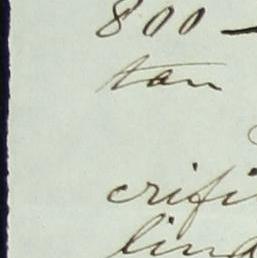 800 —
tan
crifi
lind